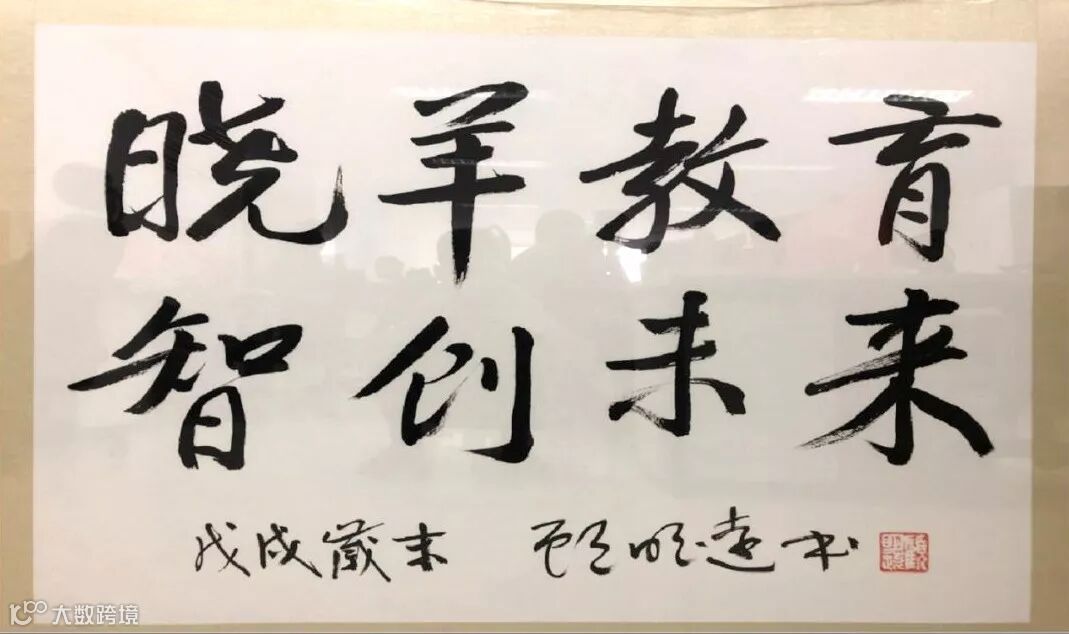 晓羊教育
智创未来
戊戌歲末 顾明远书
大数跨境